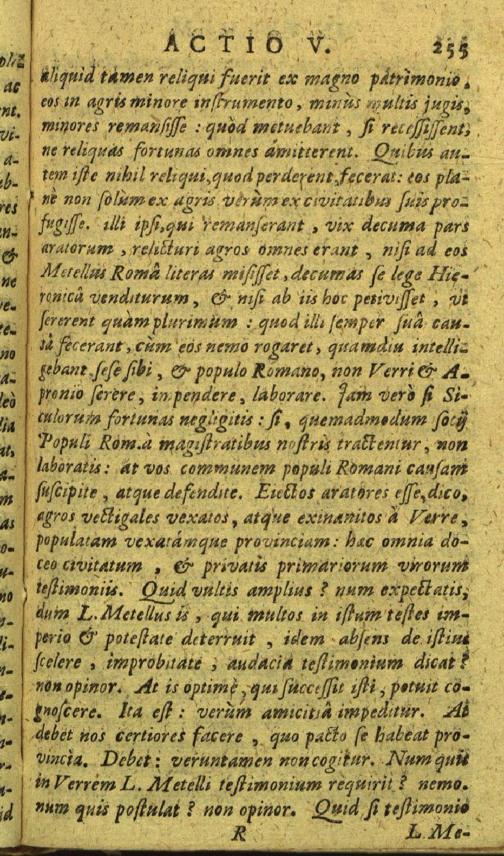 ACTIO V. 255
aliquid tamen reliqui fuerit ex magno patrimonio,
eos in agris minore instrumento, minùs multis jugis,
minores remansisse : quòd metuebant, si recessissent,
ne reliquas fortunas omnes amitterent. Quibus au-
tem iste nihil reliqui, quod perderent, fecerat: eos pla-
nè non solùm ex agris verùm ex civitatibus suis pro-
fugisse. illi ipsi, qui remanserant, vix decuma pars
aratorum, relicturi agros omnes erant, nisi ad eos
Metellus Româ literas misisset, decumas se lege Hie-
ronicâ venditurum, & nisi ab iis hoc petivisset, ut
sererent quàm plurimùm : quod illi semper suâ cau-
sâ fecerant, cùm eos nemo rogaret, quamdiu intelli-
gebant sese sibi, & populo Romano, non Verri & A-
pronio serere, inpendere, laborare. Jam verò si Si-
culorum fortunas negligitis : si, quemadmodum socij
Populi Rom. à magistratibus nostris tractentur, non
laboratis : at vos communem populi Romani causam
suscipite, atque defendite. Eiectos aratores esse, dico,
agros vectigales vexatos, atque exinanitos à Verre,
populatam vexatámque provinciam : hæc omnia do-
ceo civitatum, & privatis primariorum virorum
testimoniis. Quid vultis amplius ? num expectatis,
dum L. Metellus is, qui multos in istum testes im-
perio & potestate deterruit, idem absens de istius
scelere, improbitate, audacia testimonium dicat ?
non opinor. At is optimè, qui successit isti, potuit co-
gnoscere. Ita est : verùm amicitiâ impeditur. At
debet nos certiores facere, quo pacto se habeat pro-
vincia. Debet : veruntamen non cogitur. Num quis
in Verrem L. Metelli testimonium requirit ? nemo.
num quis postulat ? non opinor. Quid si testimonio
R L. Me-